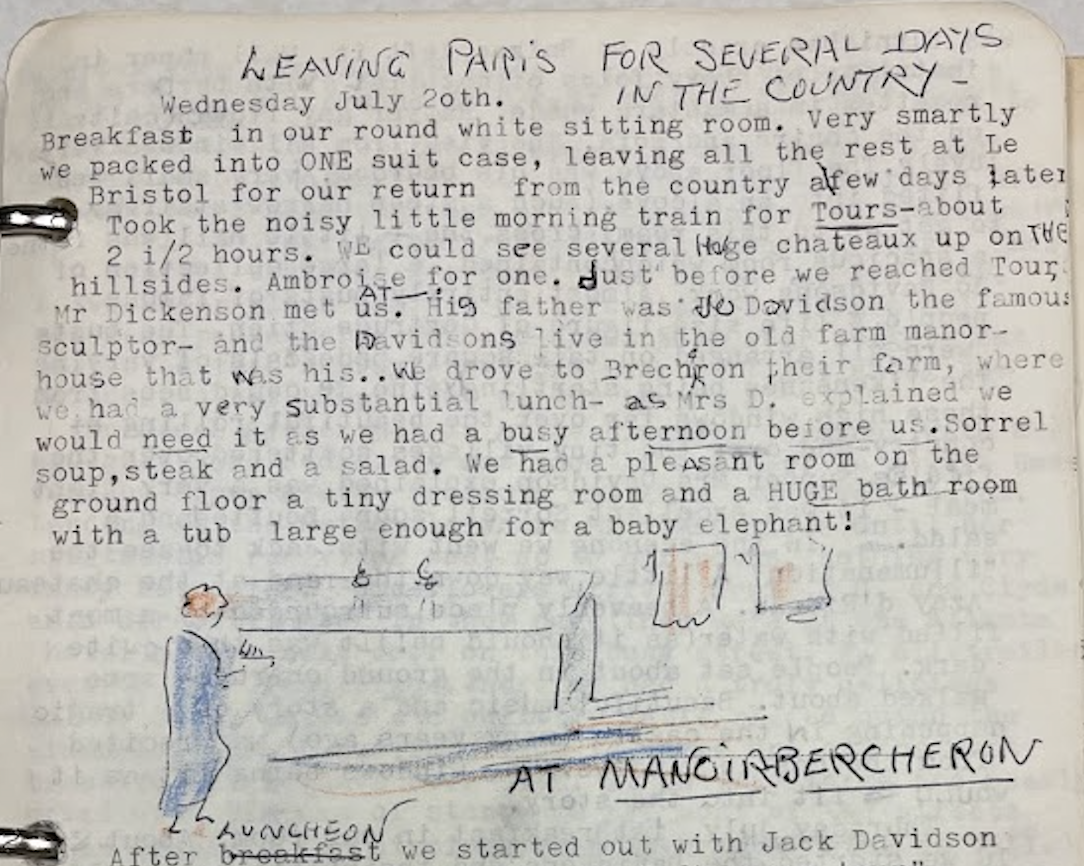 LEAVING PARIS FOR SEVERAL DAYS
IN THE COUNTRY-
Wednesday July 2oth.
Breakfast in our round white sitting room. Very smartly
we packed into ONE suit case, leaving all the rest at Le
Bristol for our return from the country a few days later
Took the noisy little morning train for Tours-about
2 i/2 hours. WE could see several Huge chateaux up on THE
hillsides. Ambroise for one. Just before we reached Tour
AT
Mr Dickenson met us. His father was JO Davidson the famous
sculptor- and the Davidsons live in the old farm manor-
house that was his..We drove to Brechron their farm, where
we had a very substantial lunch- as Mrs D. explained we
would need it as we had a busy afternoon before us.Sorrel
soup,steak and a salad. We had a pleasant room on the
ground floor a tiny dressing room and a HUGE bath room
with a tub large enough for a baby elephant!
AT MANOIR BERCHERON
LUNCHEON
After breakfast we started out with Jack Davidson